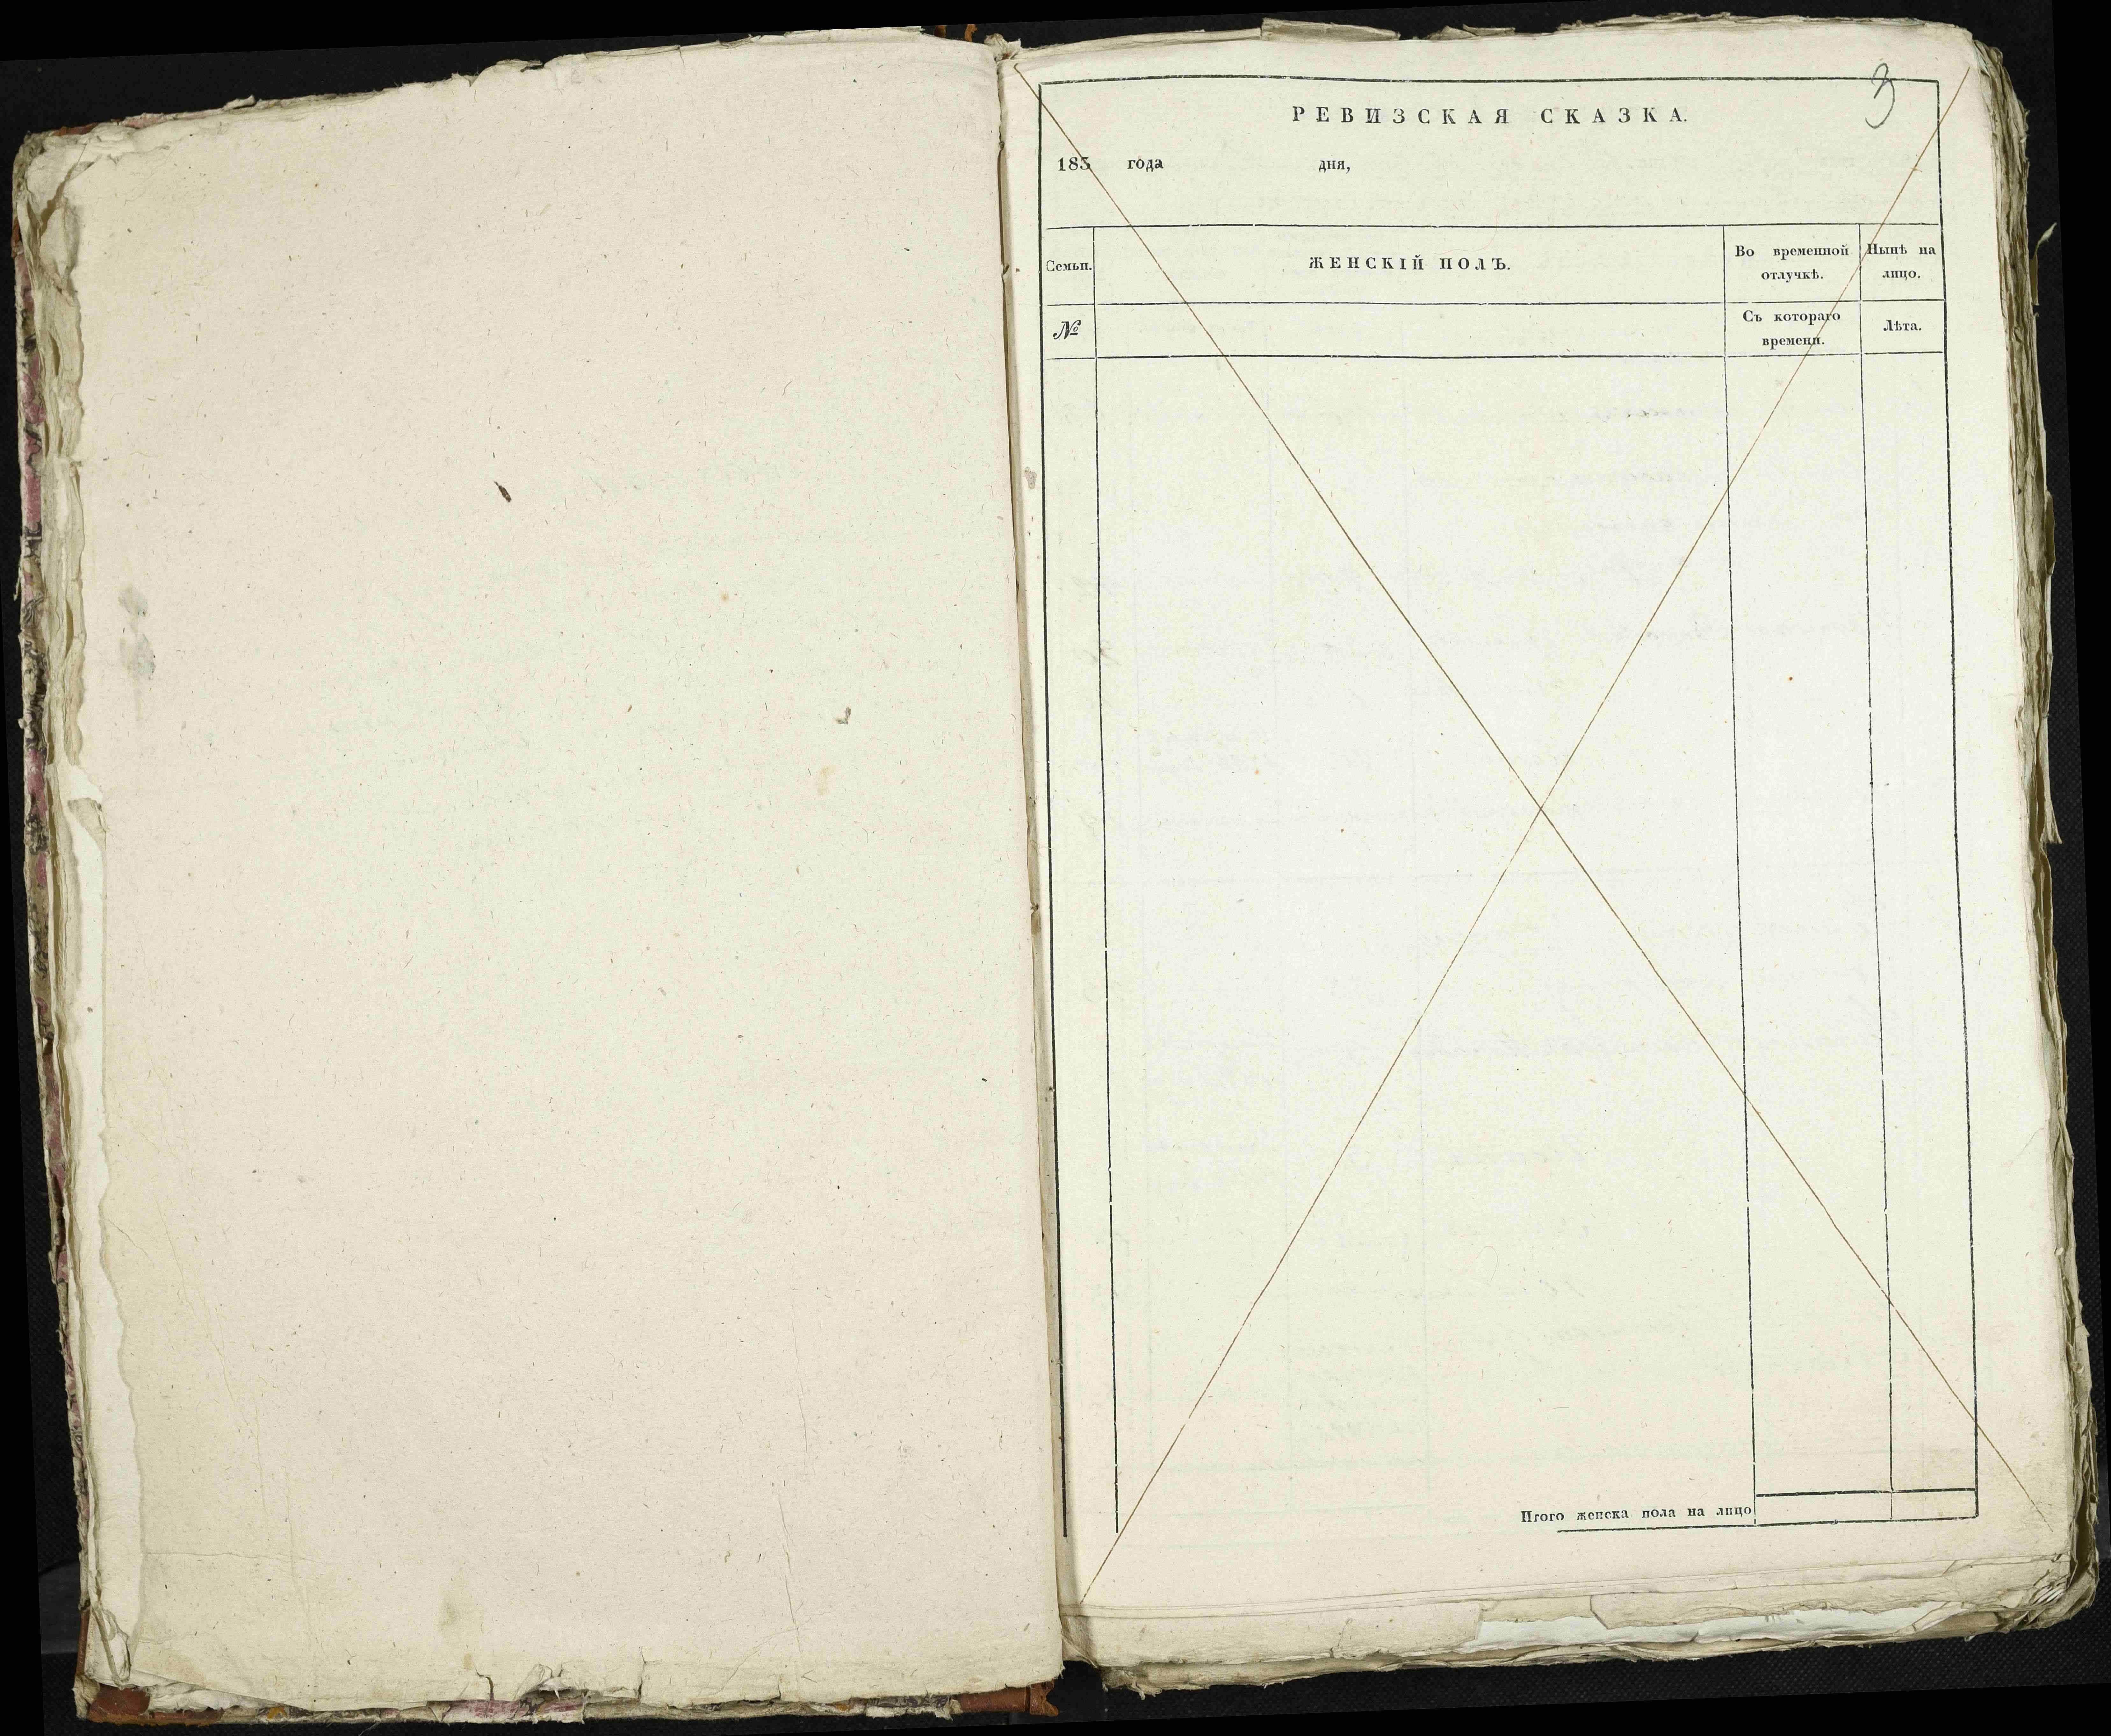 3
РЕВИЗСКАЯ СКАЗКА.
185 года дня,
Семьи.
ЖЕНСКІЙ ПОЛЪ.
Во временной
отлучкѣ.
Нынѣ на
лицо.
№
Съ котораго
времени.
Лѣта.
Итого женска пола на лицо